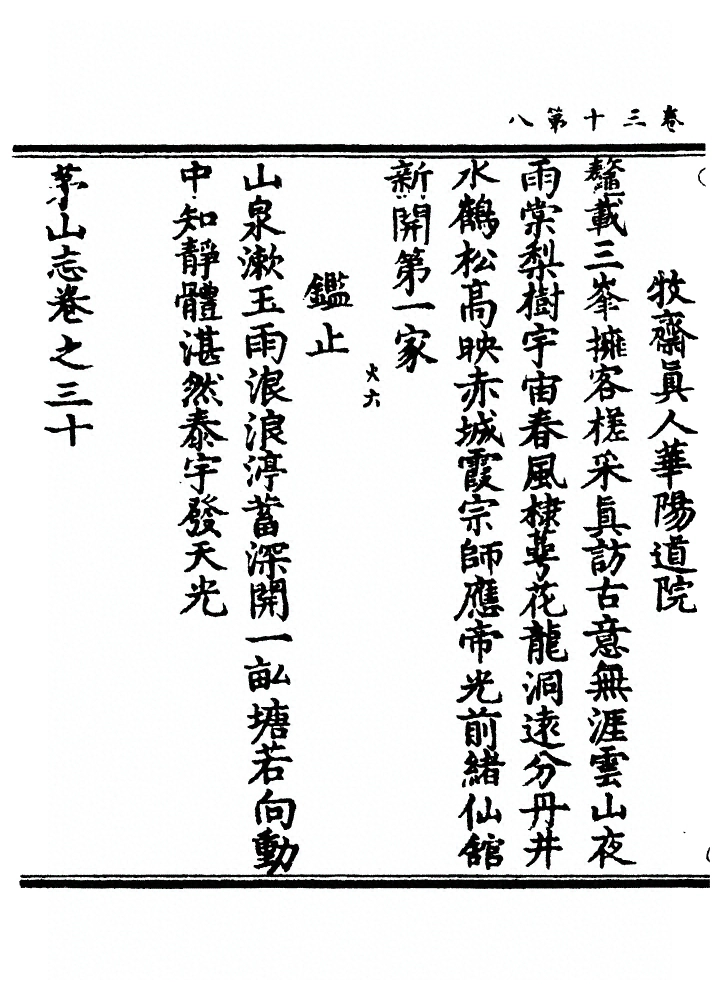 卷三十第八
牧齋眞人華陽道院
鼇載三峯擁客槎采眞訪古意無涯雲山夜
雨棠梨樹宇宙春風棣萼花龍洞遠分丹井
水鶴松高映赤城霞宗師應帝光前緒仙館
新開第一家
火六
鑑止
山泉漱玉雨浪浪渟蓄深開一畝塘若向動
中知靜體湛然泰宇發天光
茅山志卷之三十